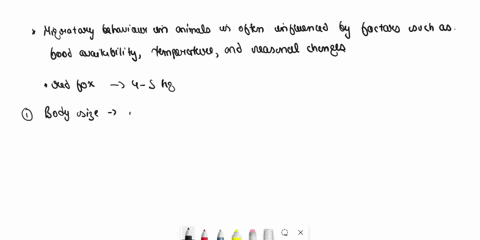 • Migratory behaviour in animals is often influenced by factors such as
food availability, temperature, and seasonal changes
• red fox → 4-5 kg
① Body size →